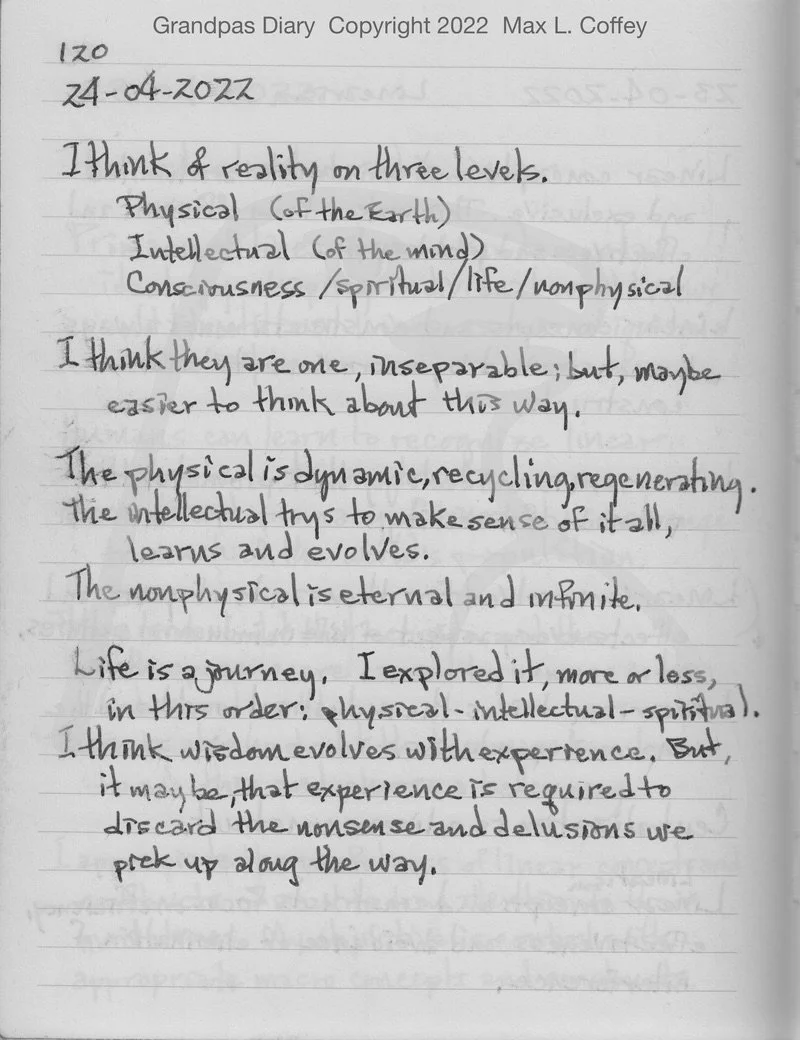 Grandpas Diary Copyright 2022 Max L. Coffey
120
24-04-2022
I think of reality on three levels.
Physical (of the Earth)
Intellectual (of the mind)
Consciousness / spiritual / life / nonphysical
I think they are one, inseparable; but, maybe
easier to think about this way.
The physical is dynamic, recycling, regenerating.
The intellectual trys to make sense of it all,
learns and evolves.
The nonphysical is eternal and infinite.
Life is a journey. I explored it, more or less,
in this order: physical - intellectual - spiritual.
I think wisdom evolves with experience. But,
it maybe, that experience is required to
discard the nonsense and delusions we
pick up along the way.